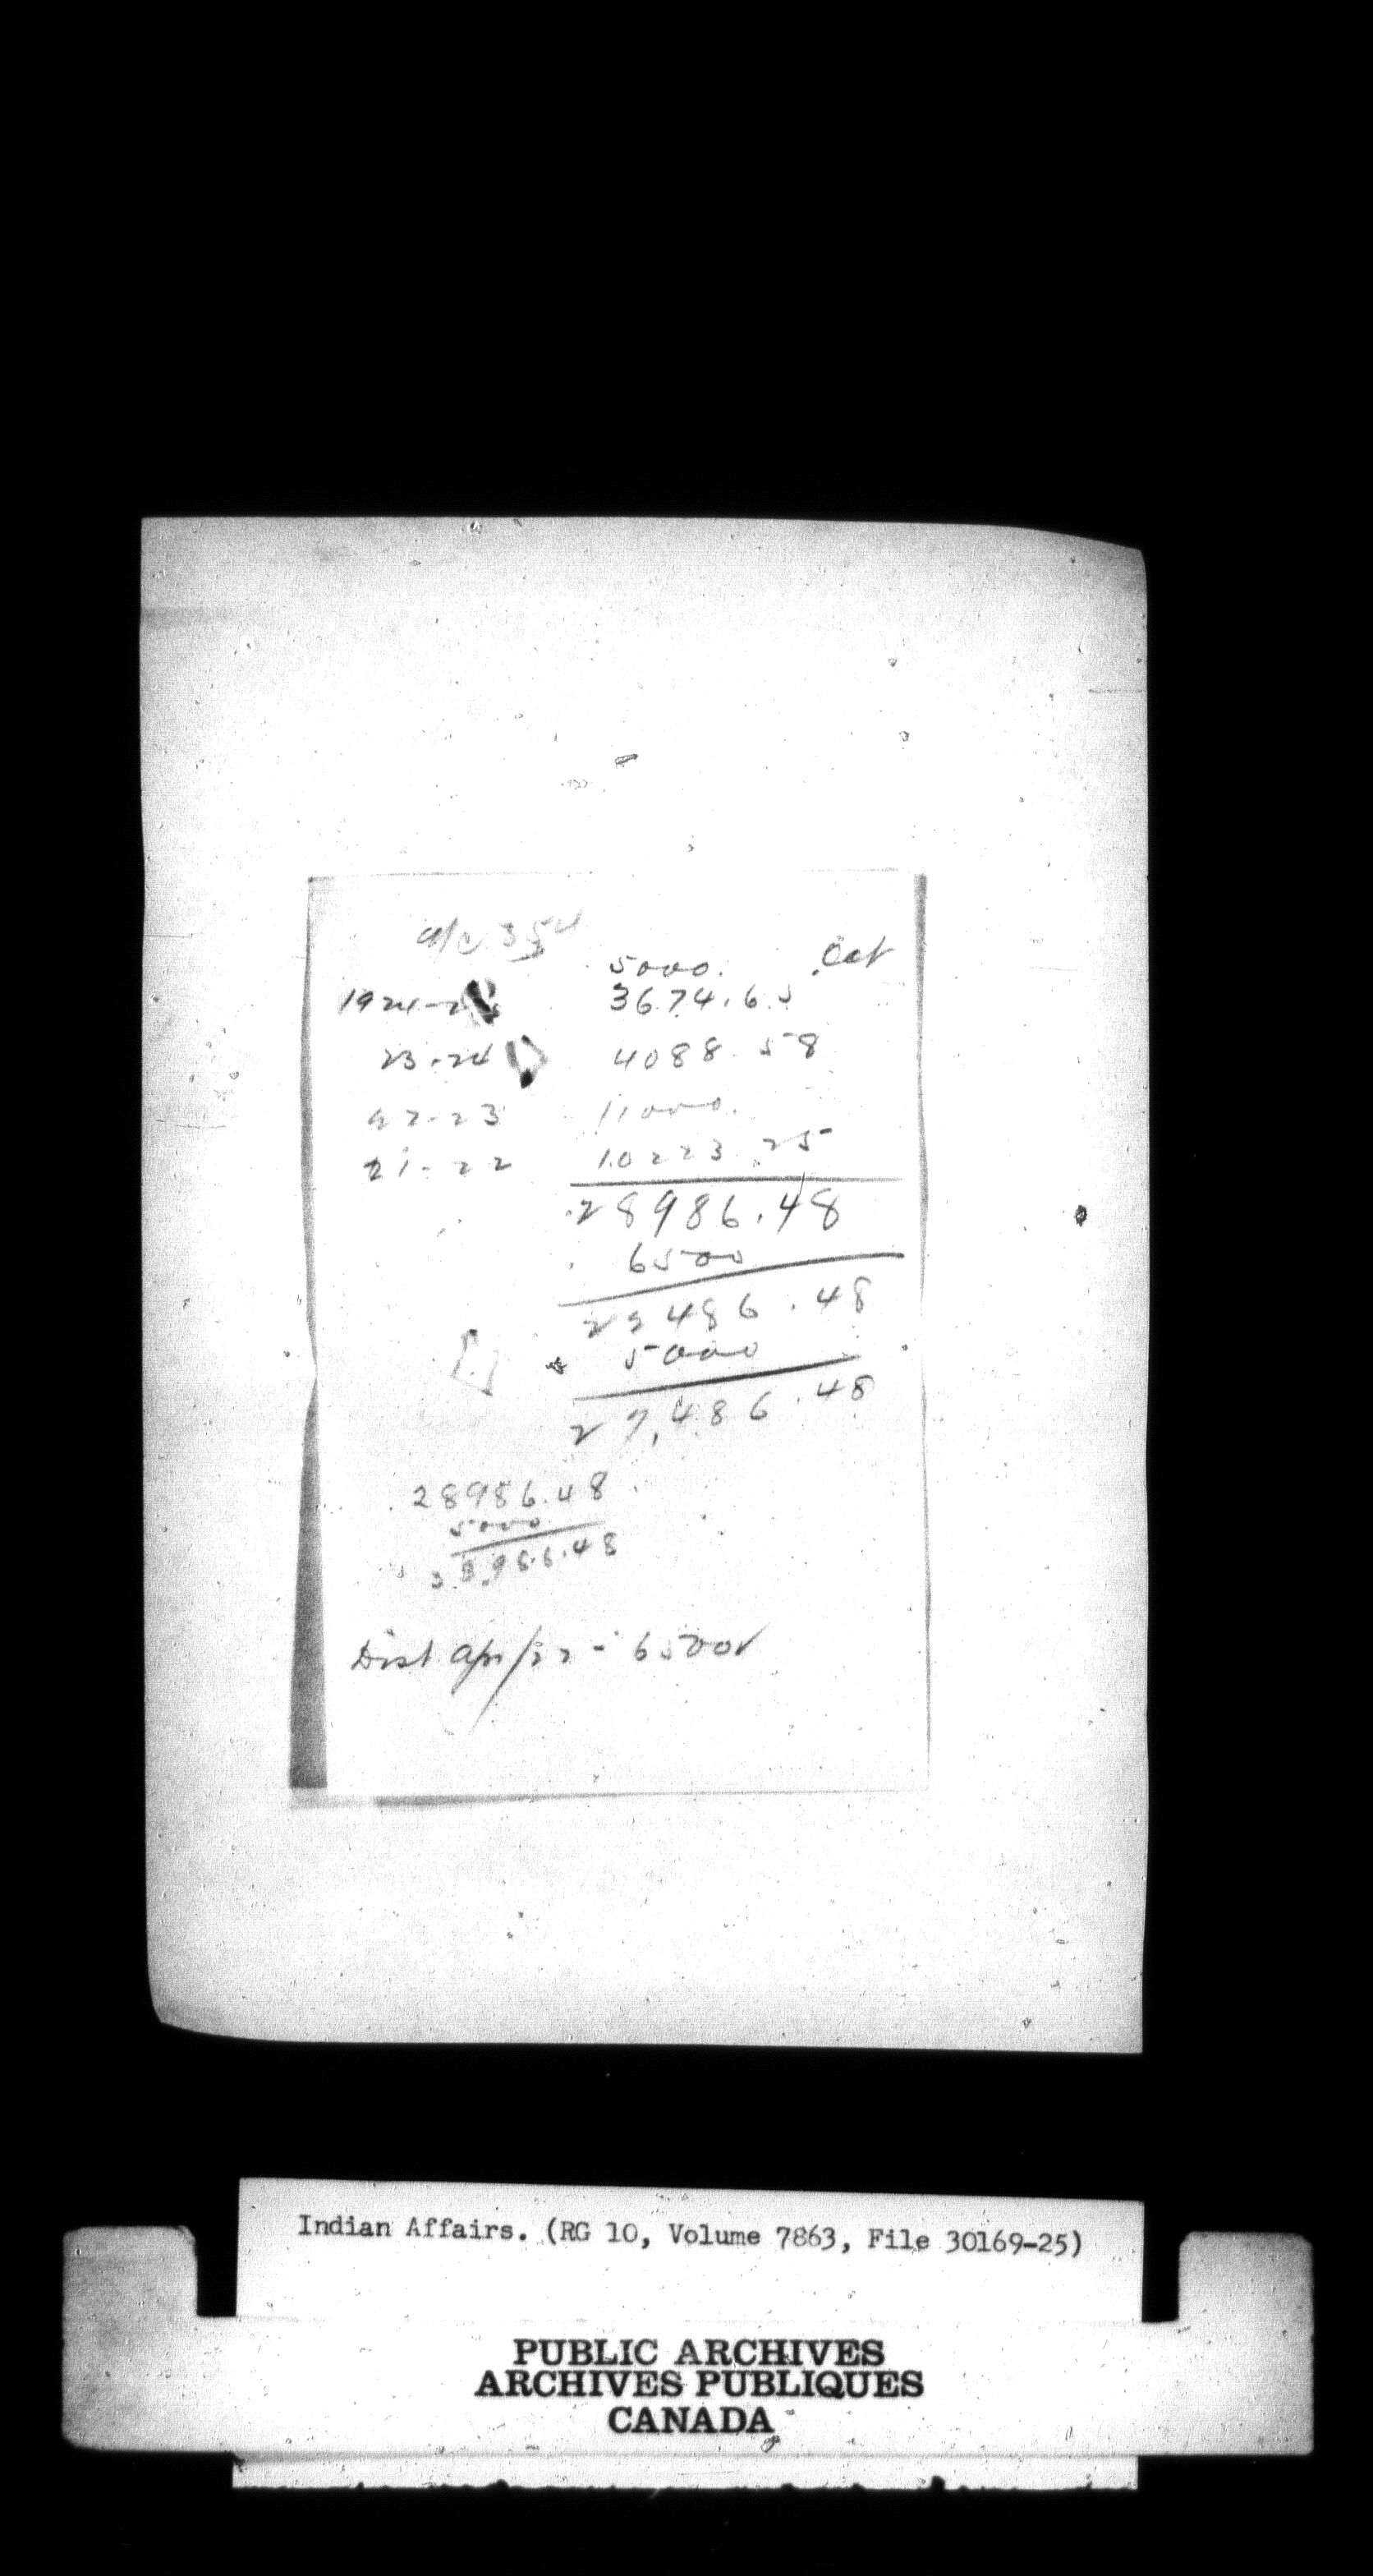 a/c 354
5000. Oct
1924-2
3674.65
23-24 4088.58
22-23 11000.
21-22 10223.25
28986.48
6500
22486.48
5000
27,486.48
28986.48
5000
33,986.48
Dist Apr/22 - 6500
Indian Affairs. (RG 10, Volume 7863, File 30169-25)
PUBLIC ARCHIVES
ARCHIVES PUBLIQUES
CANADA